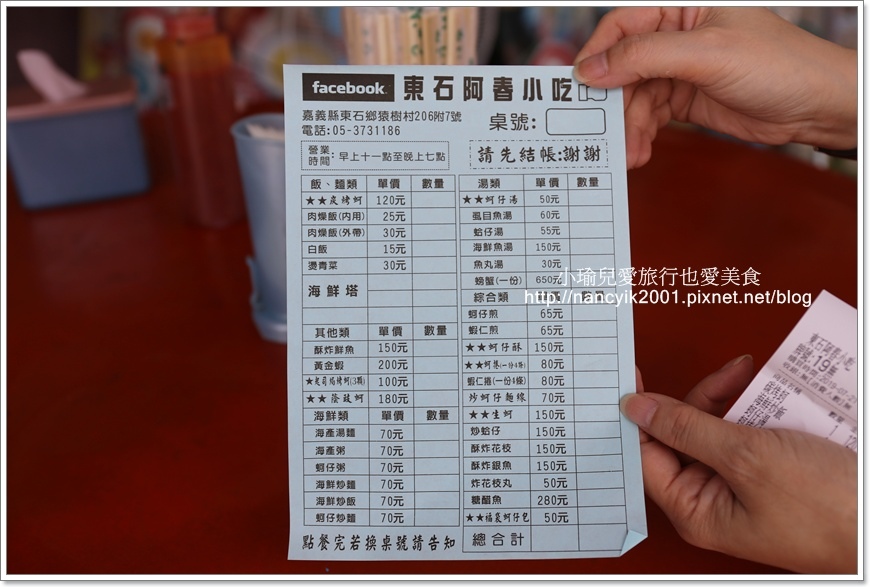 facebook 東石阿春小吃
嘉義縣東石鄉猿樹村206附7號
電話:05-3731186
桌號:
營業時間: 早上十一點至晚上七點
請先結帳:謝謝
飯、麵類 單價 數量
★★炭烤蚵 120元
肉燥飯(內用) 25元
肉燥飯(外帶) 30元
白飯 15元
燙青菜 30元
海鮮塔
其他類 單價 數量
酥炸鮮魚 150元
黃金蝦 200元
★起司焗烤蚵(3顆) 100元
★★蔭豉蚵 180元
海鮮類 單價 數量
海產湯麵 70元
海產粥 70元
蚵仔粥 70元
海鮮炒麵 70元
海鮮炒飯 70元
蚵仔炒麵 70元
點餐完若換桌號請告知
湯類 單價 數量
★★蚵仔湯 50元
虱目魚湯 60元
蛤仔湯 55元
海鮮魚湯 150元
魚丸湯 30元
螃蟹(一份) 650元
綜合類 數量
蚵仔煎 65元
蝦仁煎 65元
★★蚵仔酥 150元
★★蚵捲(一份4條) 80元
蝦仁捲(一份4條) 80元
炒蚵仔麵線 70元
★★生蚵 150元
炒蛤仔 150元
酥炸花枝 150元
酥炸銀魚 150元
炸花枝丸 50元
糖醋魚 280元
★★福袋蚵仔包 50元
總合計
小瑜兒愛旅行也愛美食
http://nancyik2001.pixnet.net/blog
東石阿春小吃